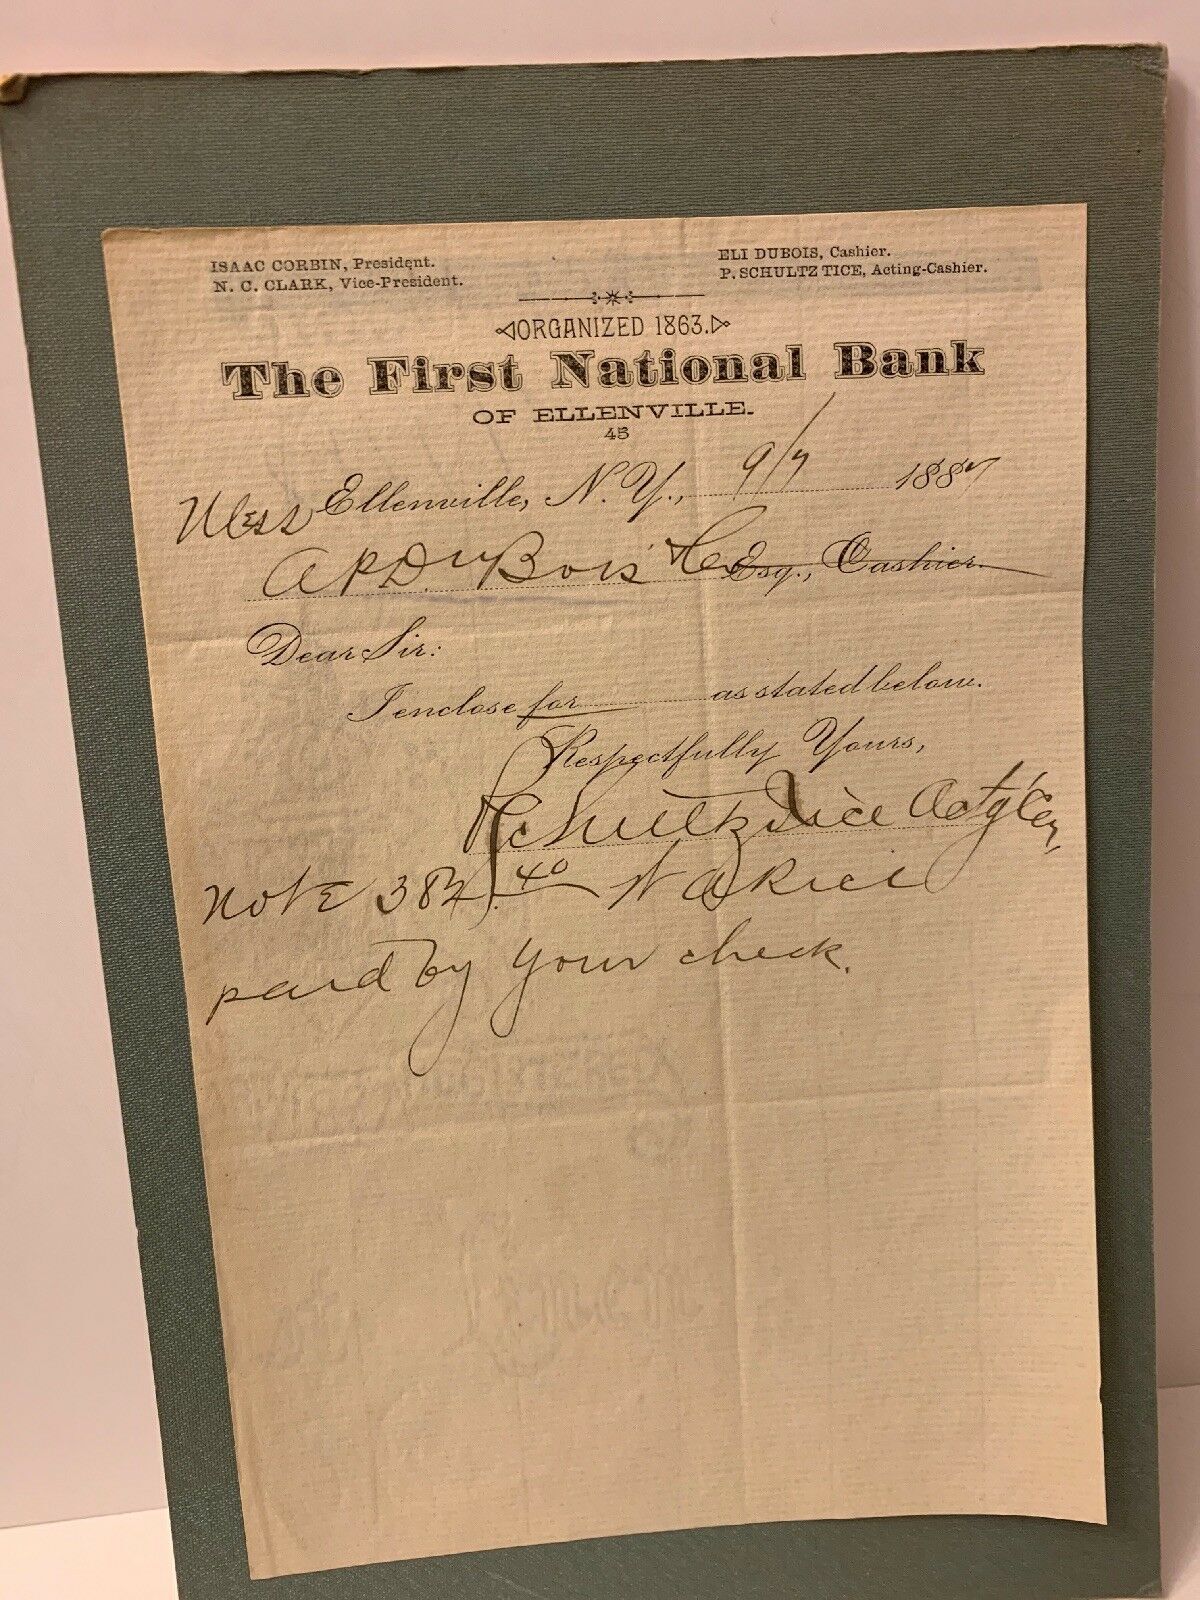 ISAAC CORBIN, President.
N. C. CLARK, Vice-President.
ELI DUBOIS, Cashier.
P. SCHULTZ TICE, Acting-Cashier.
ORGANIZED 1863.
The First National Bank
OF ELLENVILLE.
45
Ellenville, N. Y., 9/7 1887
Mess
A P DuBois & Co Esq., Cashier.
Dear Sir:
I enclose for as stated below.
Respectfully Yours,
P Schultz Tice Actg Car
Note 382.40 A Rice
paid by your check.